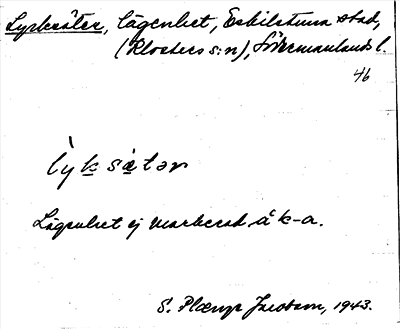 Lycksäter, lägenhet, Eskilstuna stad,
(Klosters s:n), Södermanlands l.
46
lỳk sä̀tər
Lägenhet ej markerad å k-a.
S. Plænge Jacobson, 1943.